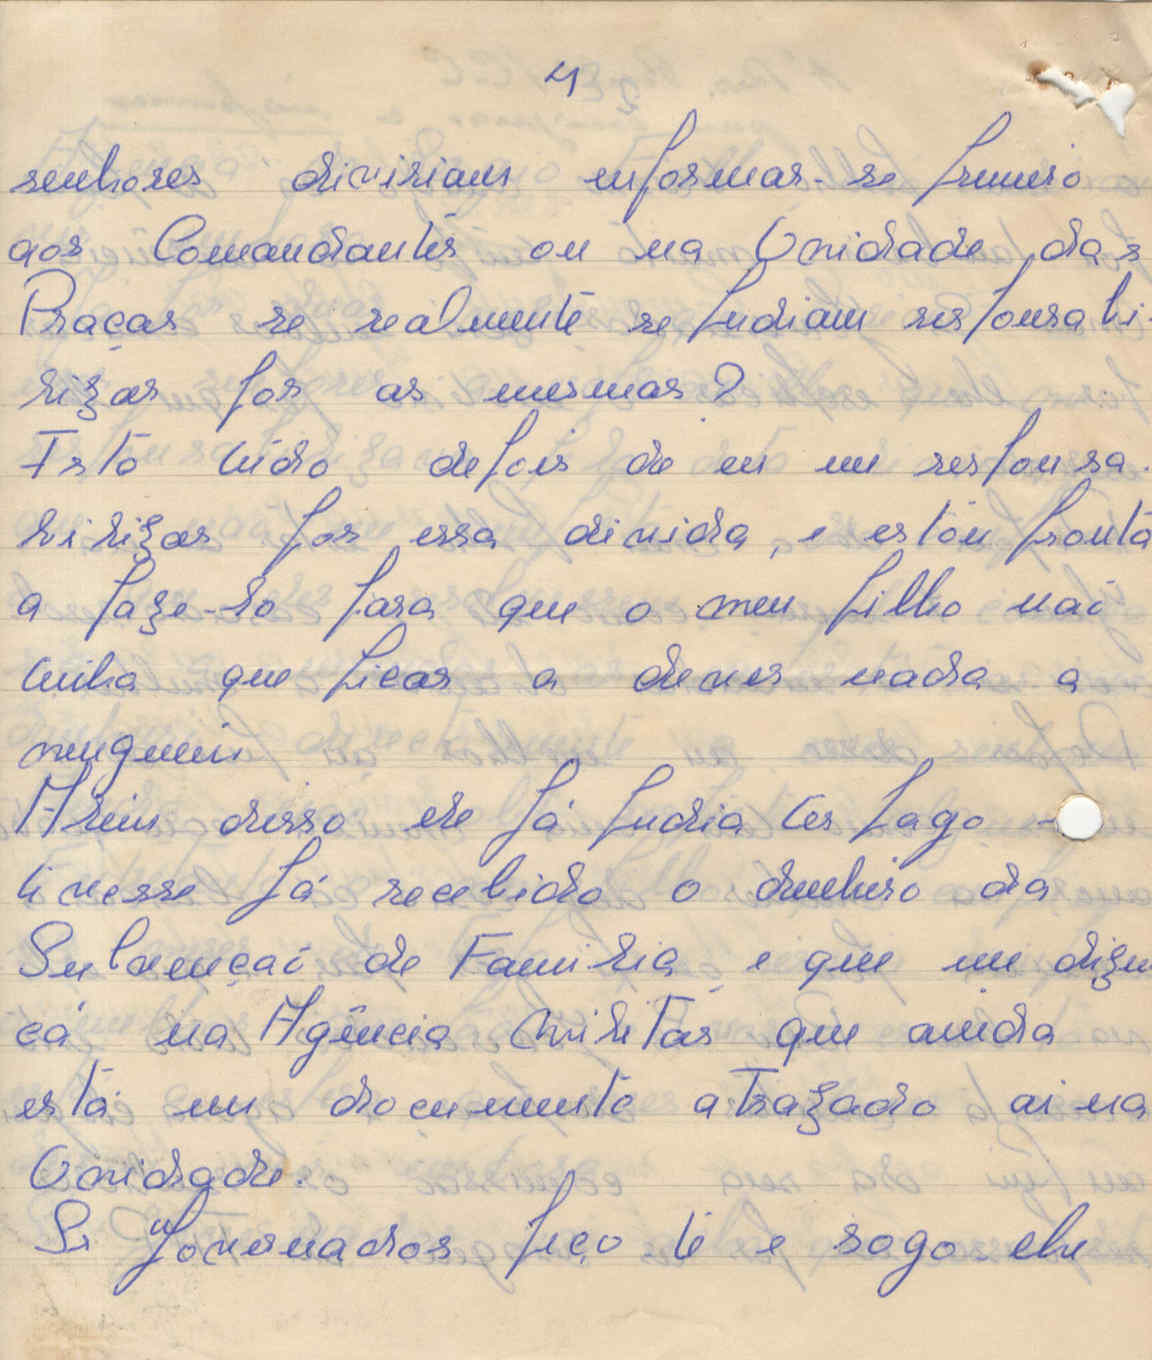 4
senhores diviriam informar-se primeiro
aos Comandantes ou na Unidade das
Praças se realmente se pudiam responsabi-
lizar por as mesmas?
Isto tudo depois de eu me responsa-
bilizar por essa divida, e estou pronta
a faze-lo para que o meu filho não
tenha que ficar a dever nada a
ninguem
Alem disso ele já pudia ter pago se
tivesse já recebido o dinheiro da
Subvenção de Familia, e que me dizem
cá na Agência Militar que ainda
está um documento atrazado ai na
Unidade.
Sr Governador peço te e rogo elhe